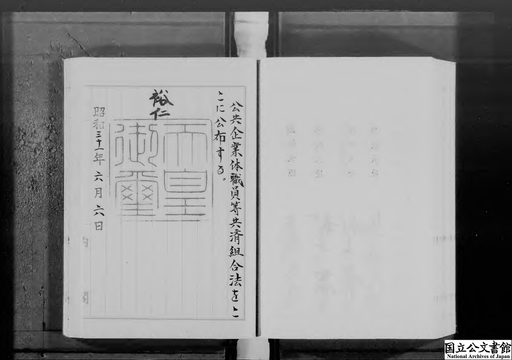 公共企業体職員等共済組合法をこ
こに公布する。
裕仁
天皇
御璽
昭和三十一年六月六日
国立公文書館
National Archives of Japan